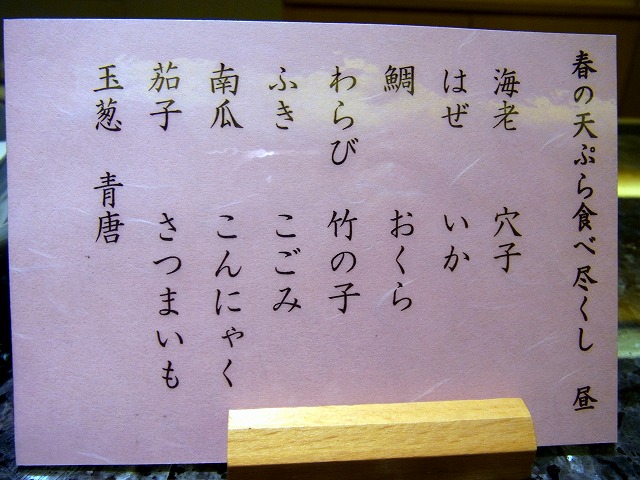 春の天ぷら食べ尽くし 昼
海老 穴子
はぜ いか
鯛 おくら
わらび 竹の子
ふき こごみ
南瓜 こんにゃく
茄子 さつまいも
玉葱 青唐